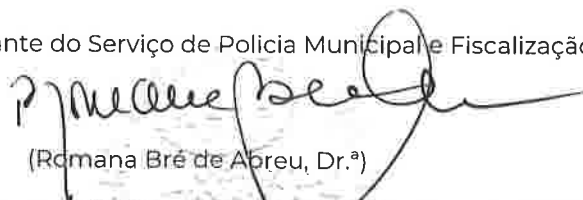 nte do Serviço de Policia Municipal e Fiscalização
(Romana Bré de Abreu, Dr.ª)